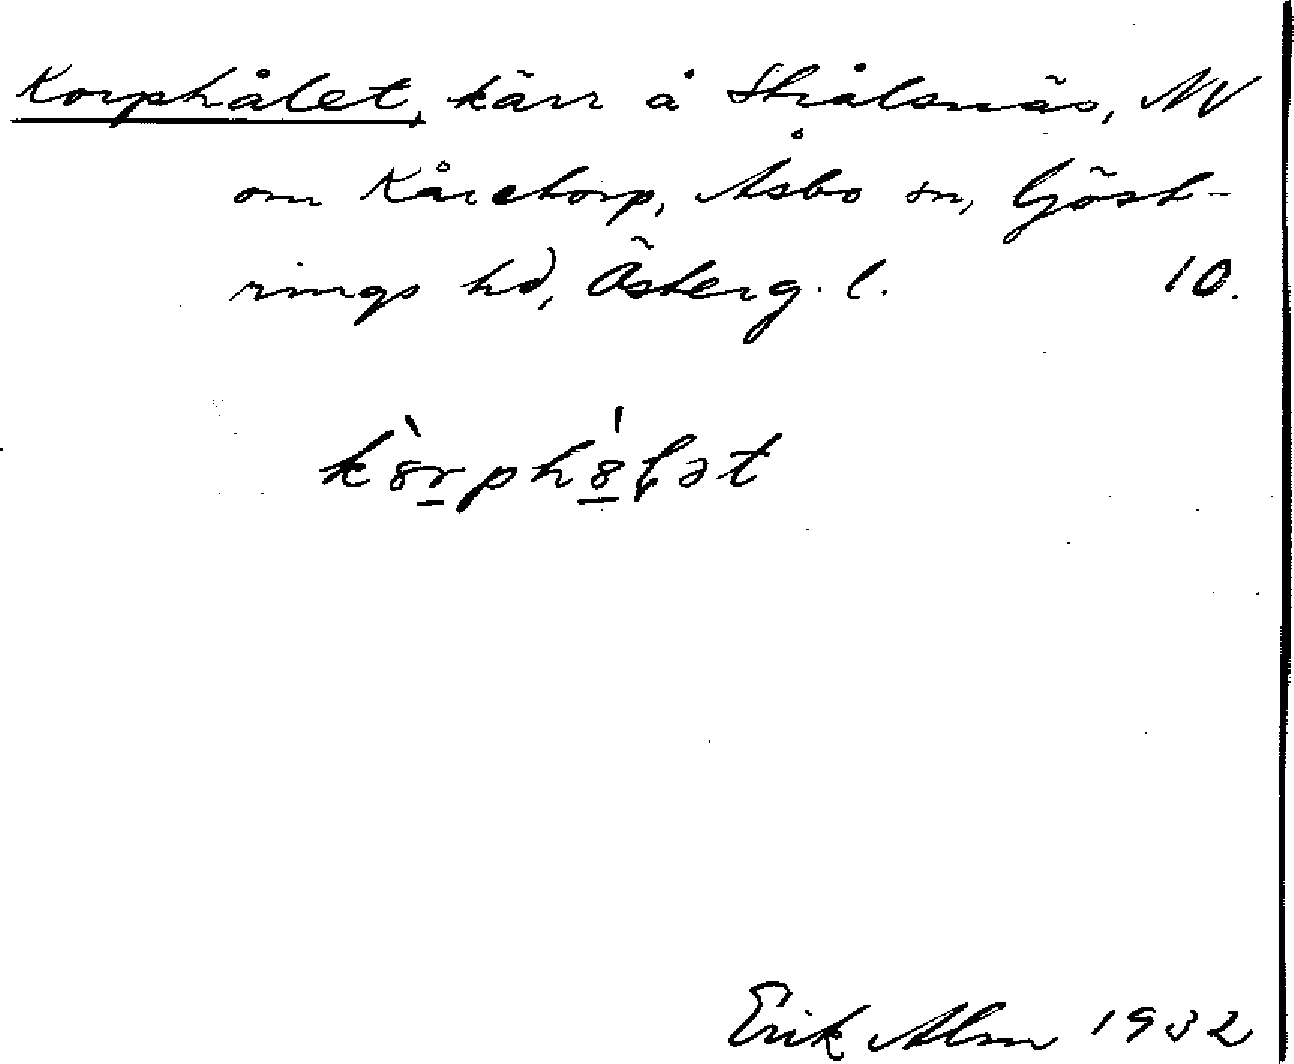 Korphålet, kärr å Strålsnäs, NV
om Kåretorp, Åsbo sn, Göst-
rings hd, Österg. l. 10.
kȍrphȯ́ļət
Erik Alm 1932